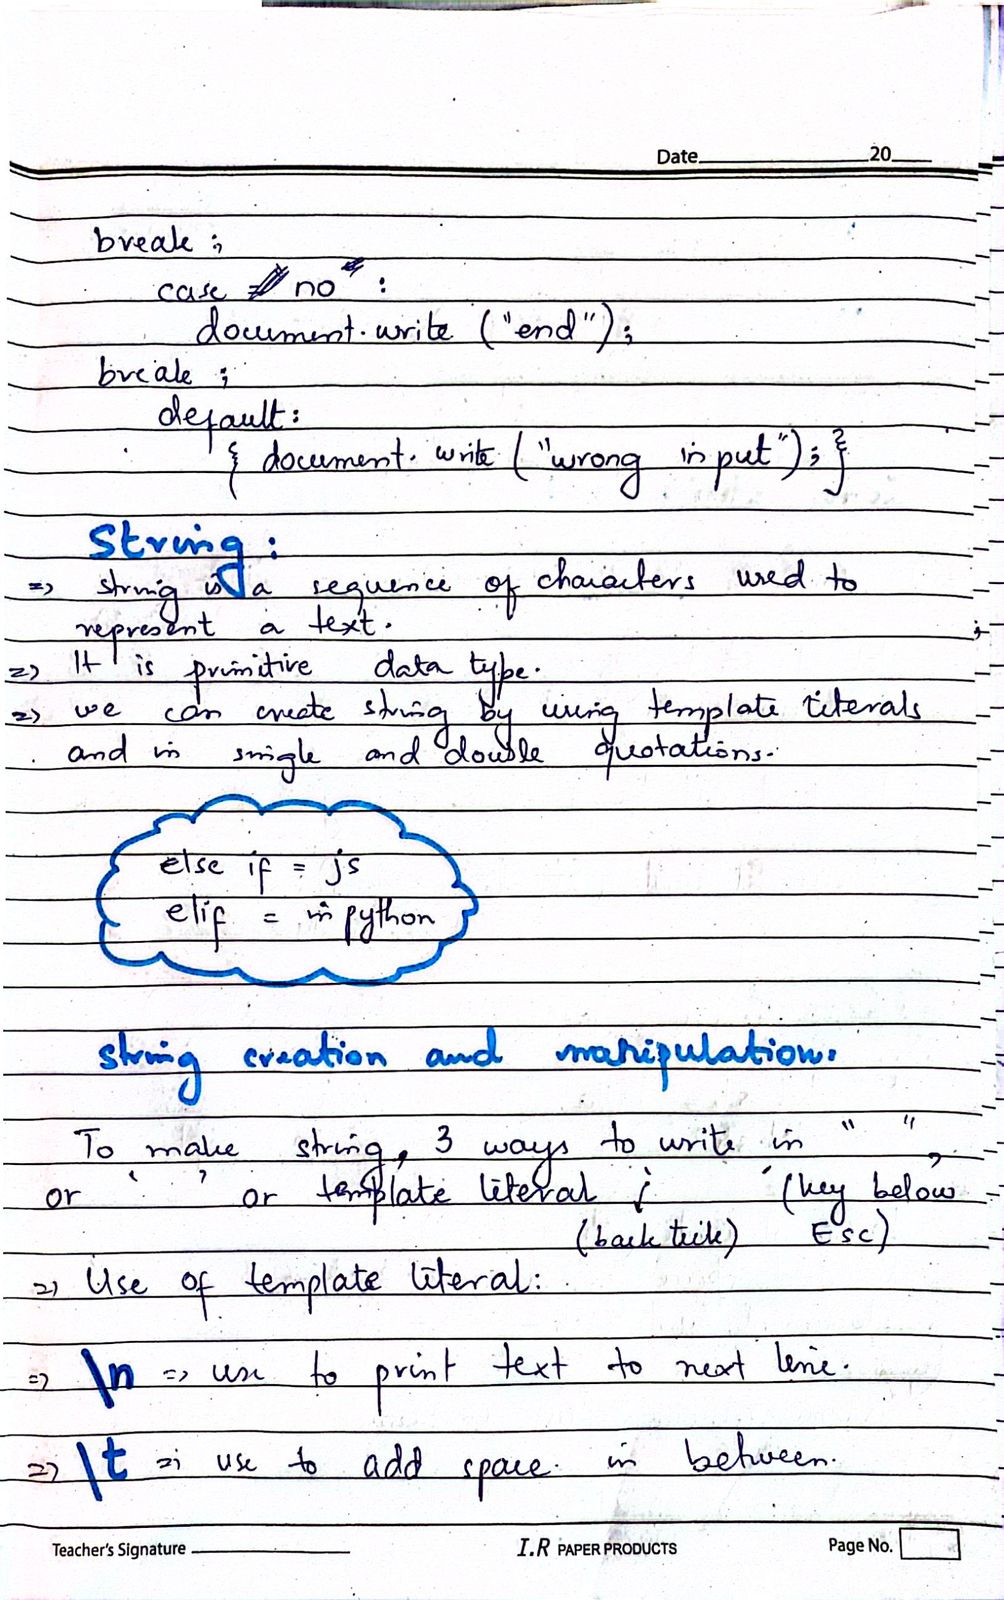 Date 20
break ;
case no" :
document.write ("end");
break ;
default:
{ document.write ("wrong input"); }
String:
=> string is a sequence of characters used to
represent a text.
=> It is primitive data type.
=> we can create string by using template literals
and in single and double quotations.
else if = js
elif = in python
string creation and manipulation.
To make string, 3 ways to write in " ",
or ' ' or template literal ; (key below
(back tick) Esc)
=> Use of template literal:
=> \n => use to print text to next line.
=> \t => use to add space in between.
Teacher's Signature I.R PAPER PRODUCTS Page No.